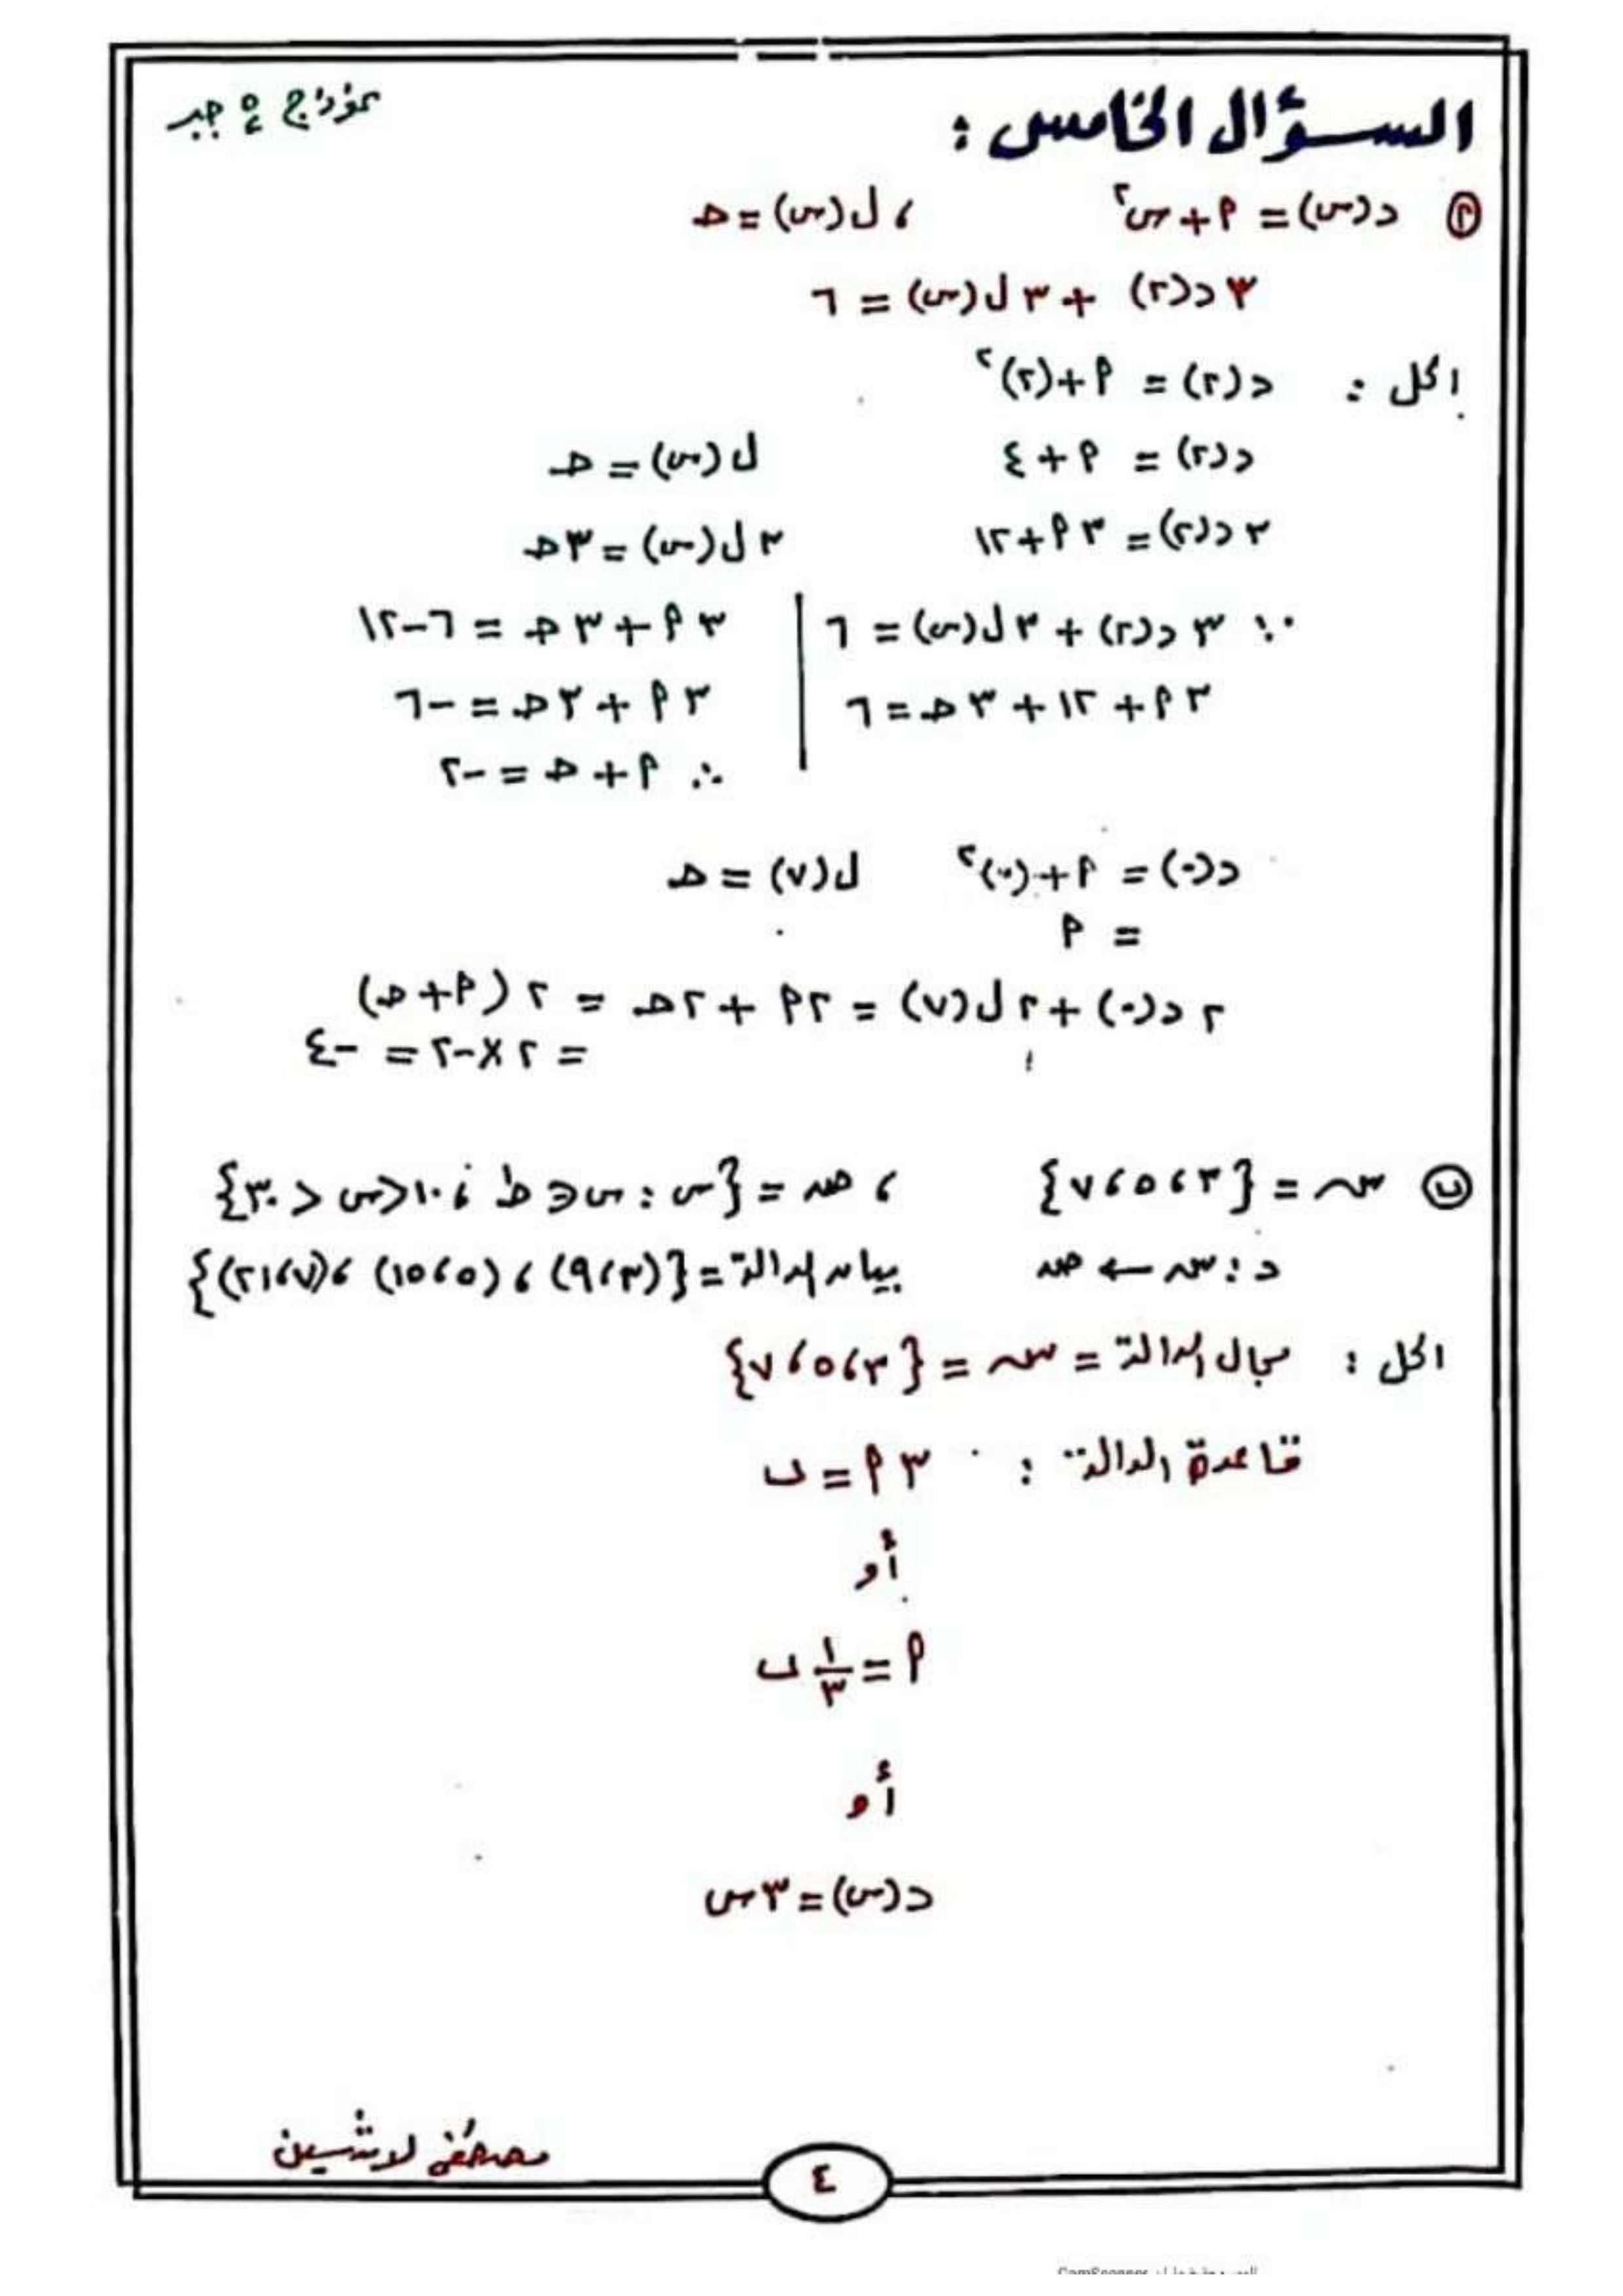 نموذج ٤ جبر
السؤال الخامس :
(أ) د(س) = أ + س² ، ل(س) = هـ
٣ د(٢) + ٣ ل(س) = ٦
الحل : د(٢) = أ + (٢)²
د(٢) = أ + ٤ ل(س) = هـ
٣ د(٢) = ٣ أ + ١٢ ٣ ل(س) = ٣ هـ
∵ ٣ د(٢) + ٣ ل(س) = ٦ | ٣ أ + ٣ هـ = ٦ - ١٢
٣ أ + ١٢ + ٣ هـ = ٦ | ٣ أ + ٣ هـ = -٦
∴ أ + هـ = -٢
د(٠) = أ + (٠)² ل(٧) = هـ
= أ
٢ د(٠) + ٢ ل(٧) = ٢ أ + ٢ هـ = ٢ (أ + هـ)
= ٢ × -٢ = -٤
(ب) سـ = {٣ ، ٥ ، ٧} ، صـ = {س : س ∈ ط ، ١٠ < س < ٣٠}
د : سـ ← صـ بيان الدالة = {(٣ ، ٩) ، (٥ ، ١٥) ، (٧ ، ٢١)}
الحل : مجال الدالة = سـ = {٣ ، ٥ ، ٧}
قاعدة الدالة : ٣ أ = ب
أو
أ = ١/٣ ب
أو
د(س) = ٣ س
مصطفى لاشين
٤